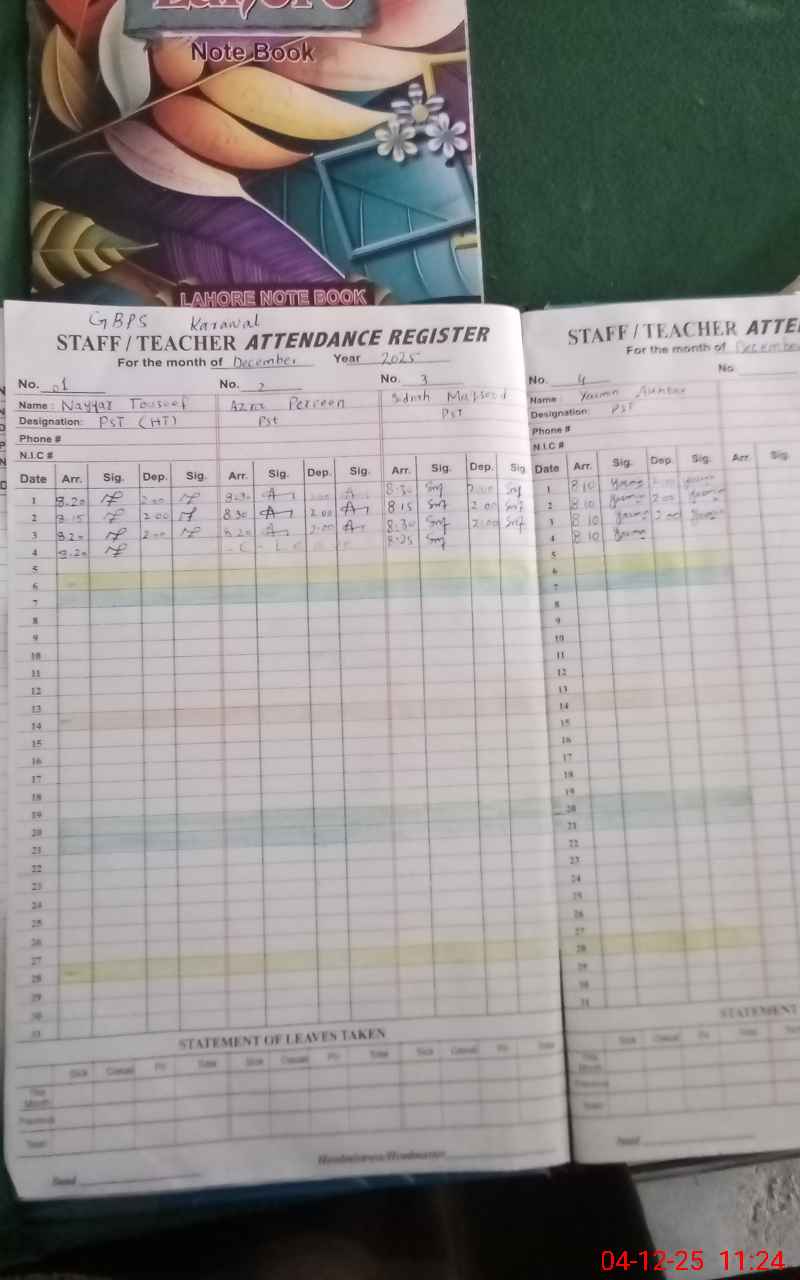 Lahore
Note Book
LAHORE NOTE BOOK
GBPS Karawal
STAFF / TEACHER ATTENDANCE REGISTER
For the month of December Year 2025
No. 01 No. 2 No. 3
Name : Nayyar Touseef Azra Perveen Sidrah Maqsood
Designation: PST (HT) Pst PST
Phone #
N.I.C #
Date Arr. Sig. Dep. Sig. Arr. Sig. Dep. Sig. Arr. Sig. Dep. Sig
1 8.20 2.00 8.30 2.00 8.30 2.00
2 8.15 2.00 8.30 2.00 8.15 2.00
3 8.20 2.00 8.20 2.00 8.30 2.00
4 8.20 8.25
5
6
7
8
9
10
11
12
13
14
15
16
17
18
19
20
21
22
23
24
25
26
27
28
29
30
31
STATEMENT OF LEAVES TAKEN
Sick Casual Pri Total Sick Casual Pri Total Sick Casual Pri Total
This Month
Previous
Total
Headmistress/Headmaster
STAFF / TEACHER ATTE
For the month of December
No. 4 No.
Name :
Designation: PST
Phone #
N.I.C #
Date Arr. Sig. Dep. Sig. Arr. Sig.
1 8.10
2 8.10 2.00
3 8.10 2.00
4 8.10
5
6
7
8
9
10
11
12
13
14
15
16
17
18
19
20
21
22
23
24
25
26
27
28
29
30
31
STATEMENT
Sick Casual Pri Total Sick
This Month
Previous
Total
04-12-25 11:24